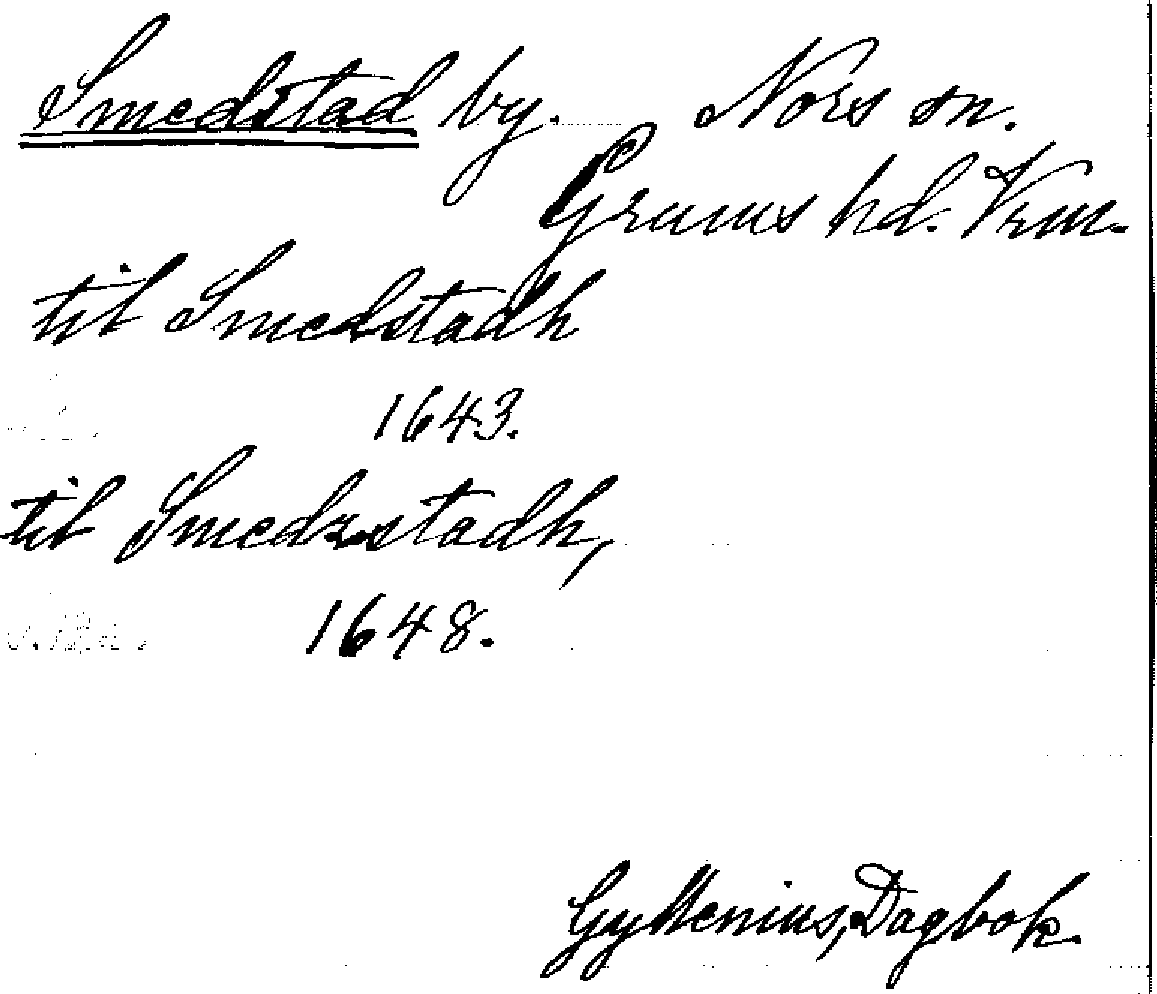 Smedstad by. Nors sn.
Grums hd. Vrm.
til Smedstadh
1643.
til Smedzstadh,
1648.
Gyllenius, Dagbok.